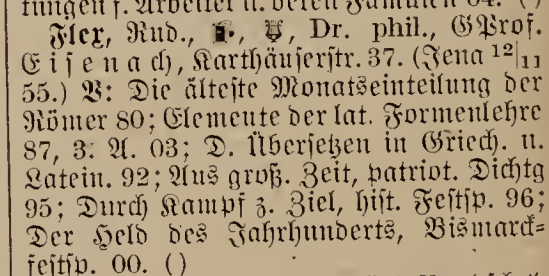 tungen f. Arbeiter u. deren Familien 04. ()
Flex, Rud., Dr. phil., GProf.
Eisenach, Karthäuserstr. 37. (Jena 12/11
55.) V: Die älteste Monatseinteilung der
Römer 80; Elemente der lat. Formenlehre
87, 3. A. 03; D. Übersetzen in Griech. u.
Latein. 92; Aus groß. Zeit, patriot. Dichtg
95; Durch Kampf z. Ziel, hist. Festsp. 96;
Der Held des Jahrhunderts, Bismarck=
festsp. 00. ()